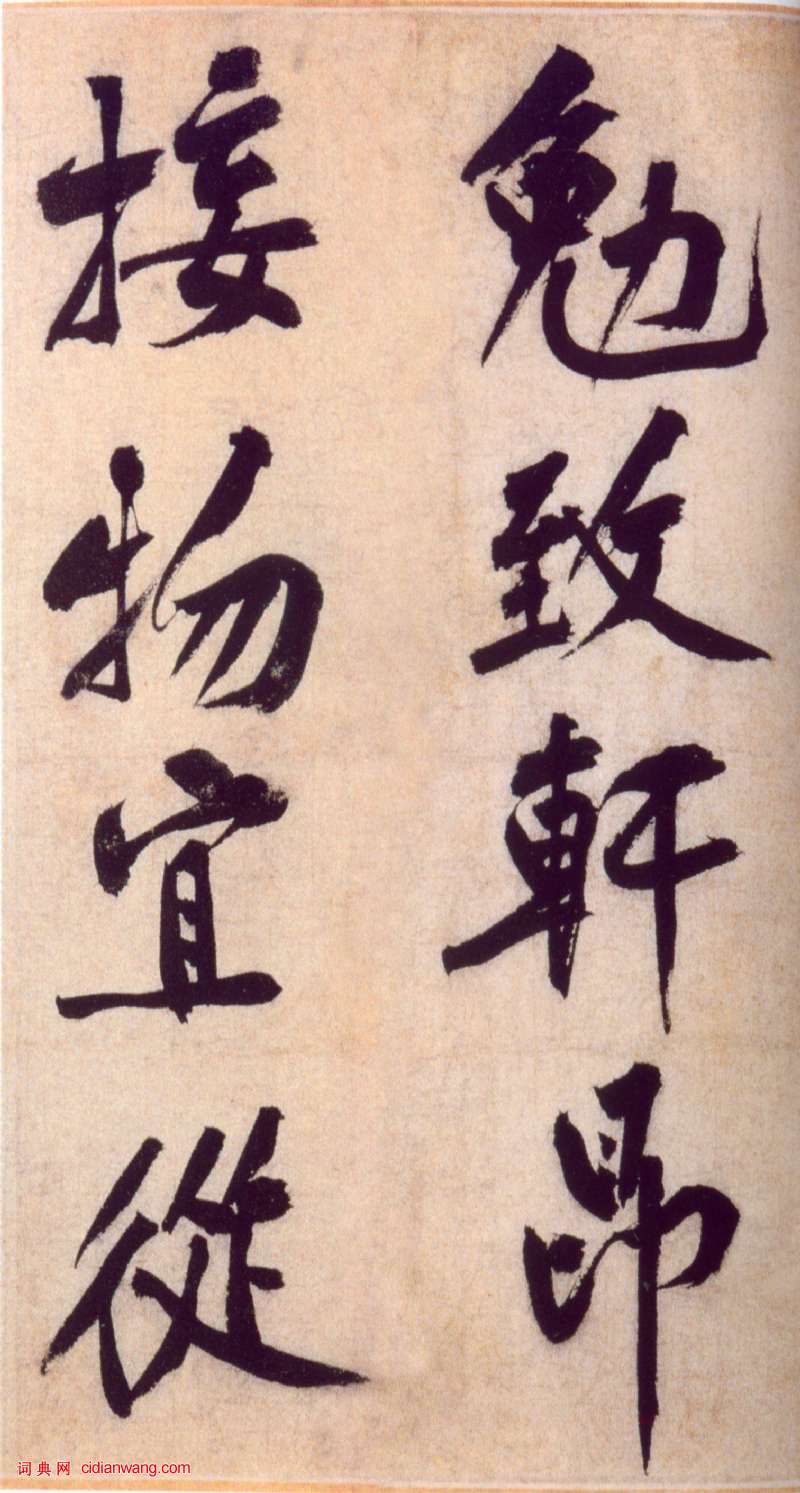 勉致軒昂
接物宜從
词典网 cidianwang.com